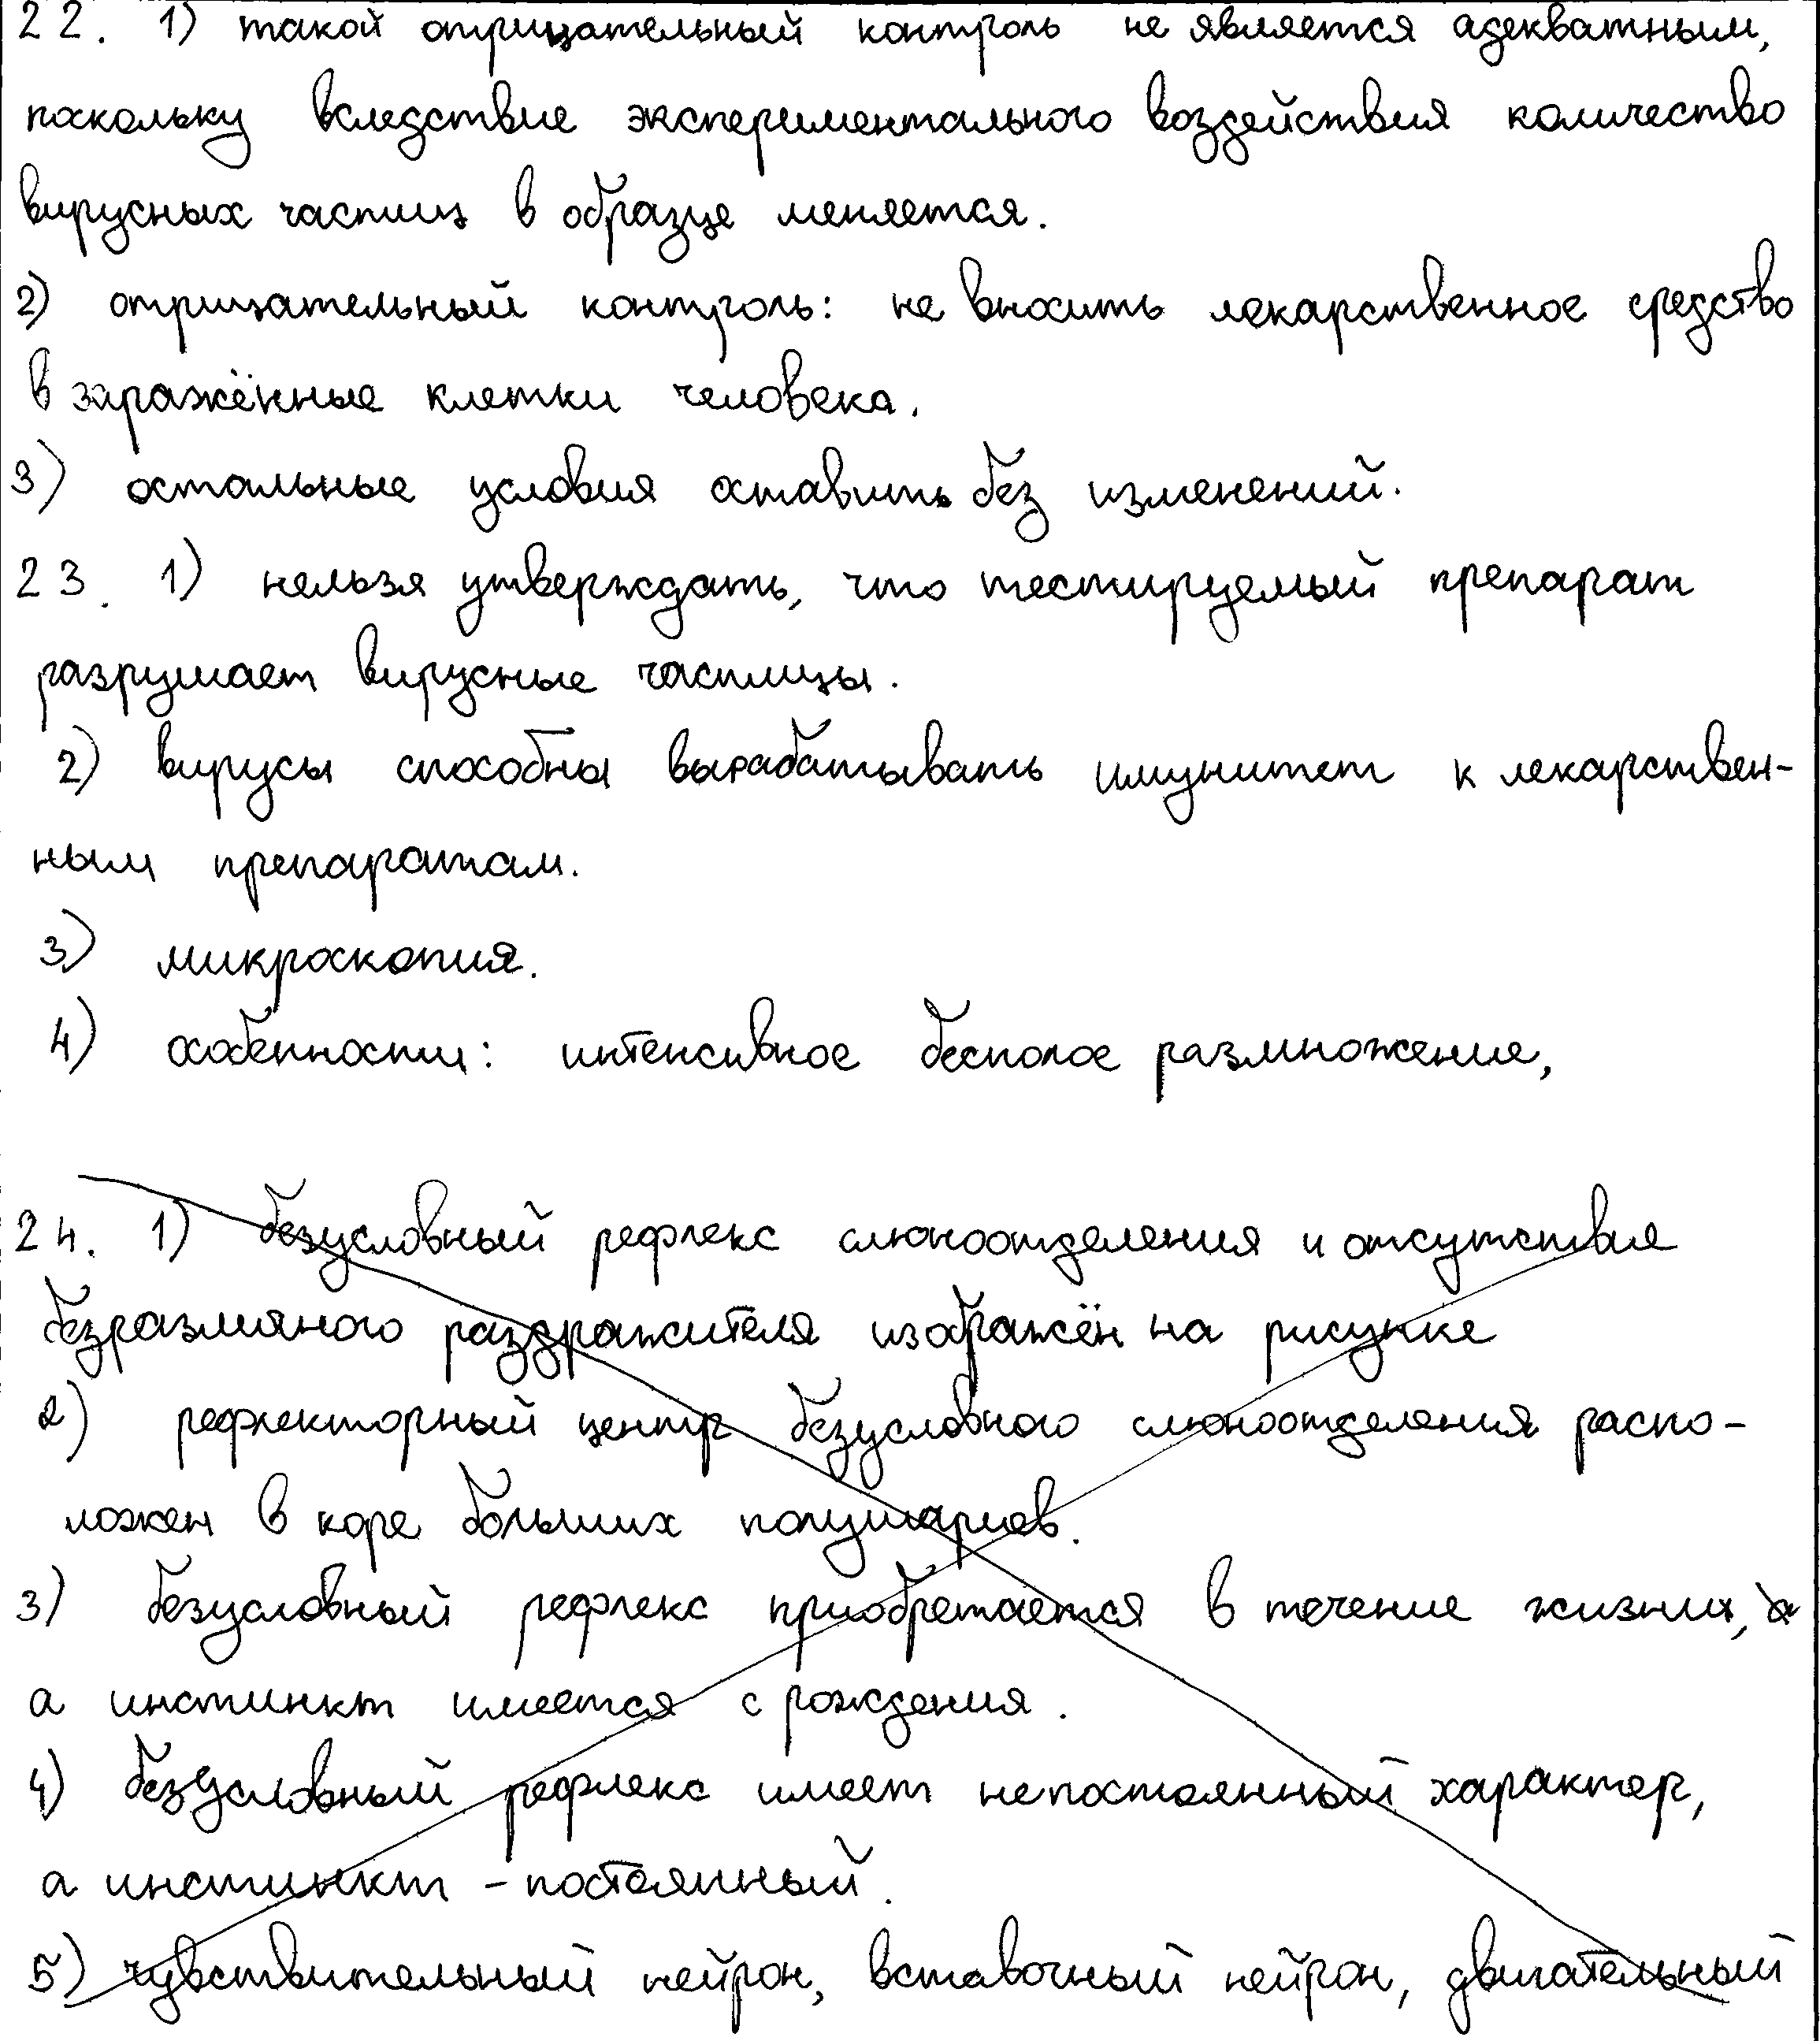 22. 1) такой отрицательный контроль не является адекватным,
поскольку вследствие экспериментального воздействия количество
вирусных частиц в образце меняется.
2) отрицательный контроль: не вносить лекарственное средство
в заражённые клетки человека.
3) остальные условия оставить без изменений.
23. 1) нельзя утверждать, что тестируемый препарат
разрушает вирусные частицы.
2) вирусы способны вырабатывать имунитет к лекарствен-
ным препаратам.
3) микроскопия.
4) особенности: интенсивное бесполое размножение,
24. 1) безусловный рефлекс слюноотделения и отсутствия
безразмяного раздражителя изображён на рисунке
2) рефлекторный центр безусловного слюноотделения распо-
ложен в коре больших полушариев.
3) безусловный рефлекс приобретается в течение жизни,
а инстинкт имеется с рождения.
4) безусловный рефлекс имеет непостоянный характер,
а инстинкт - постоянный.
5) чувствительный нейрон, вставочный нейрон, двигательный